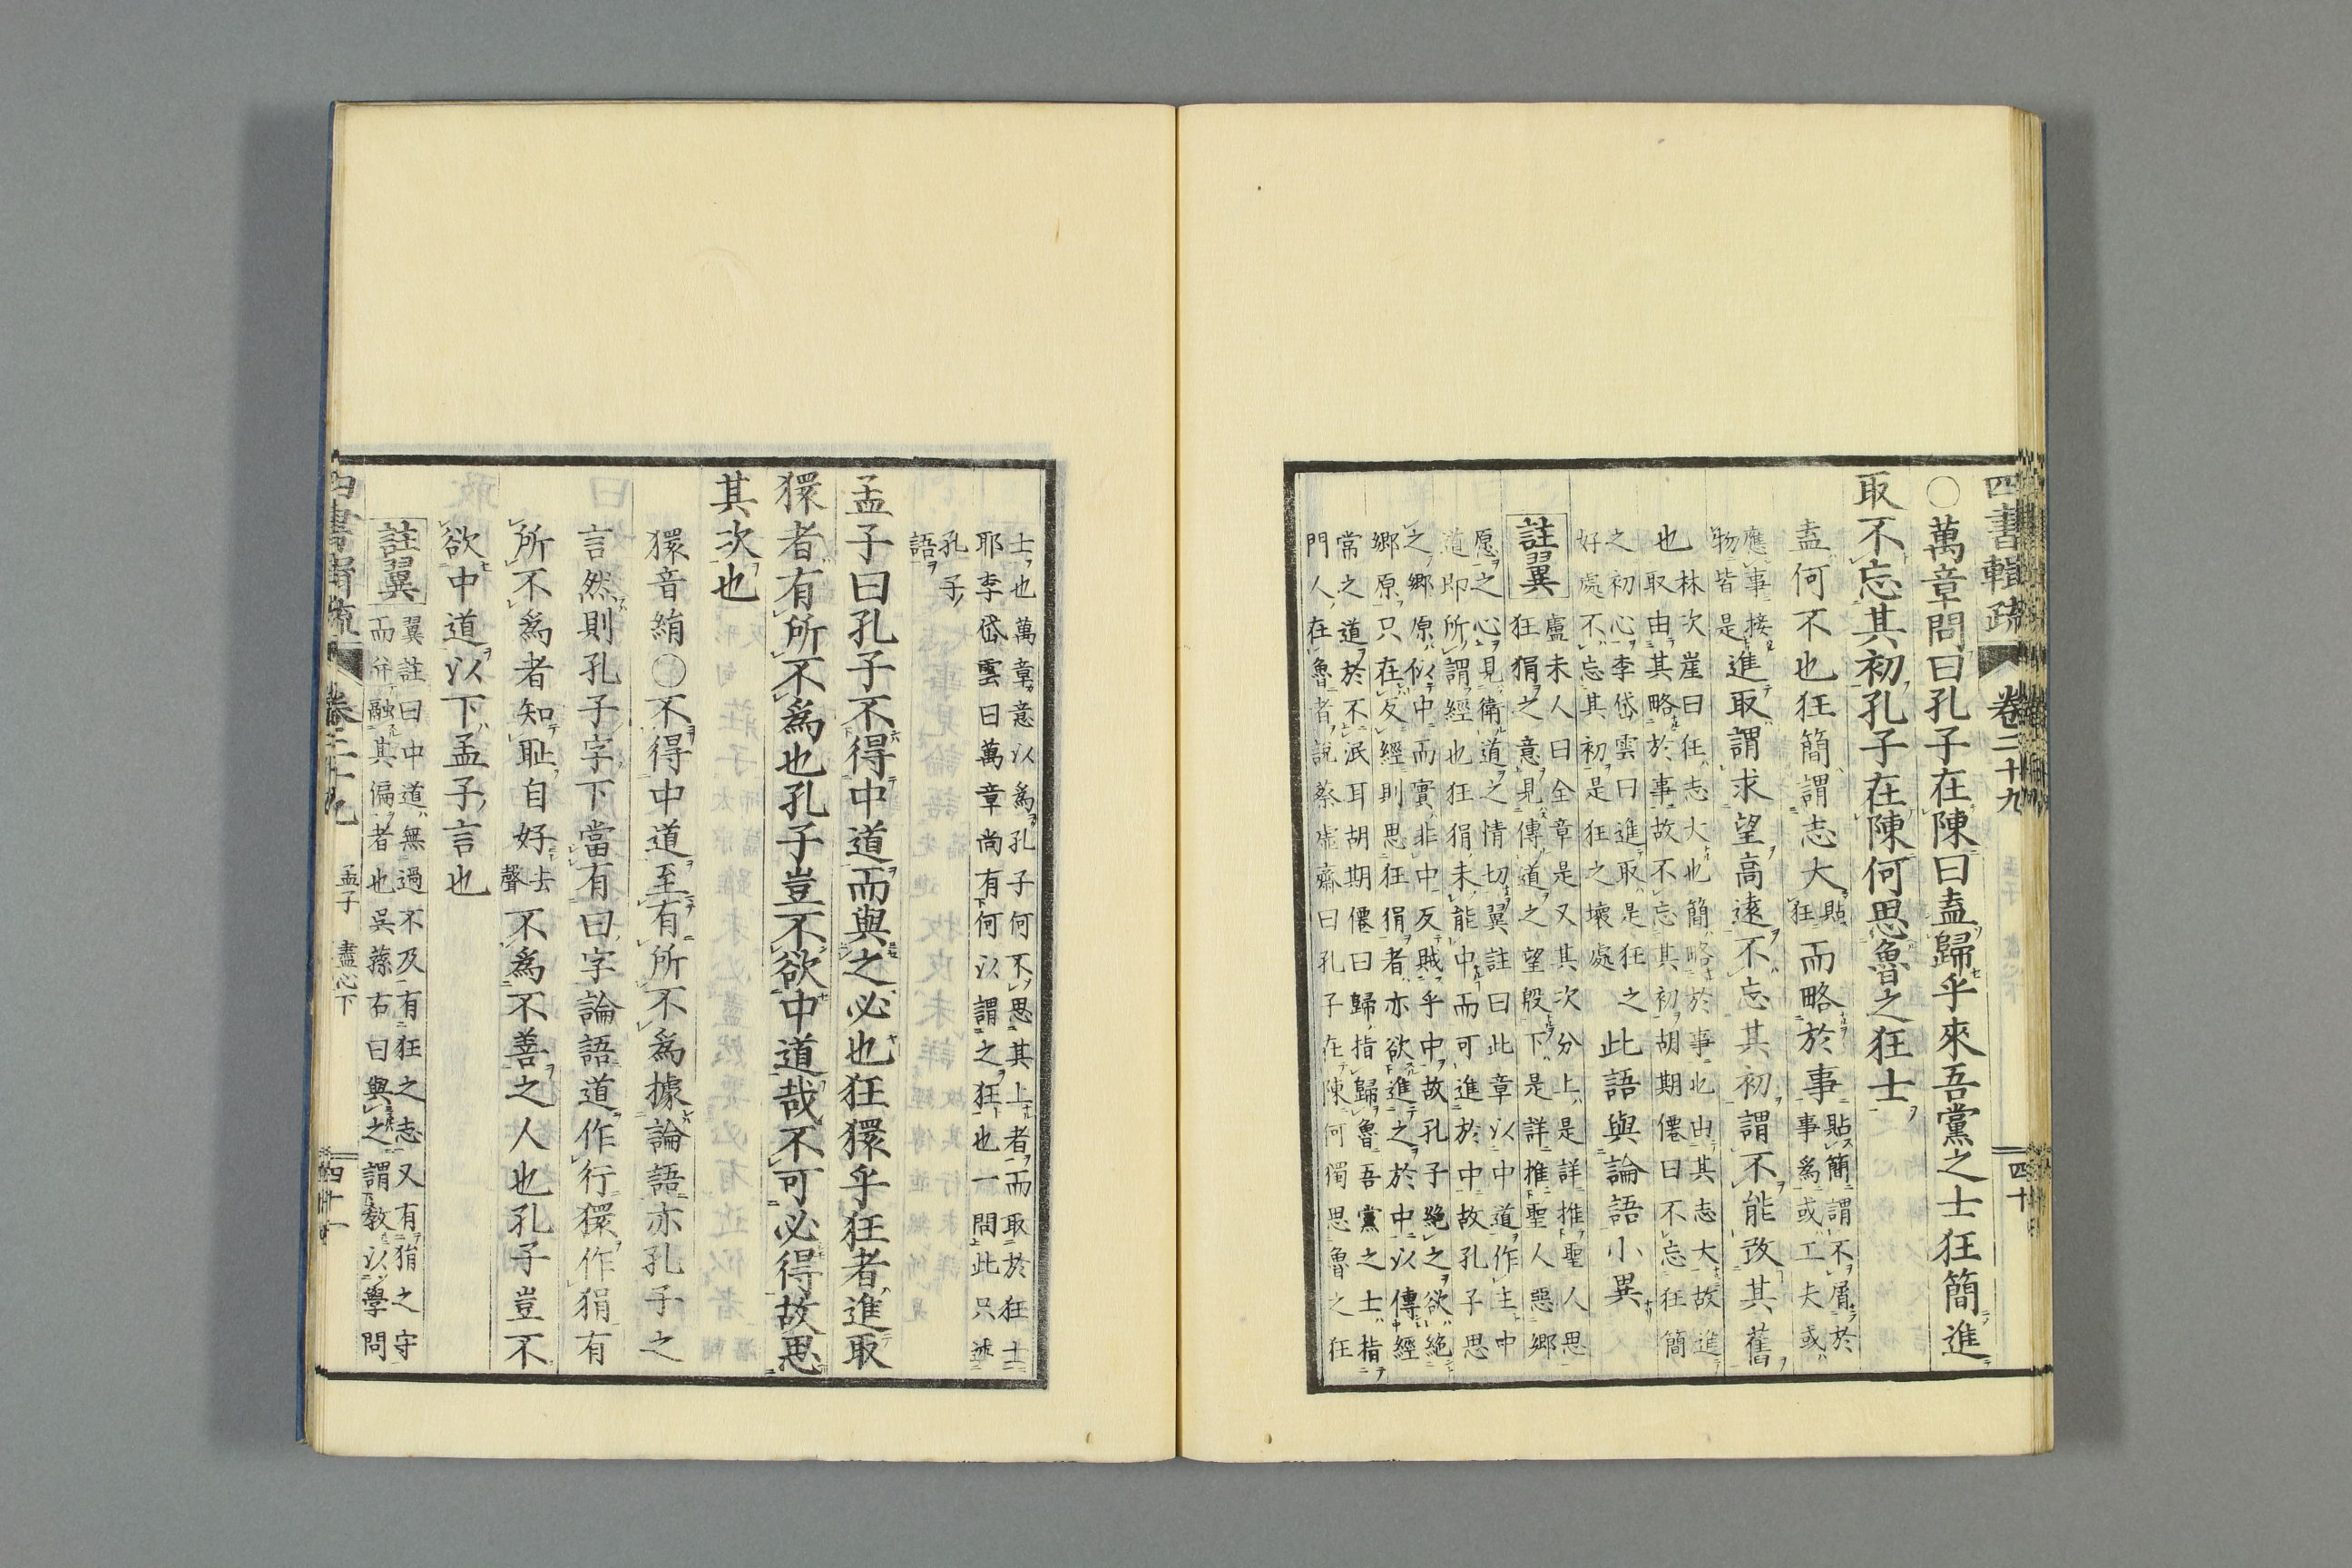 四書輯疏 卷二十九 四十
○萬章問曰孔子在陳曰盍歸乎來吾黨之士狂簡進
取不忘其初孔子在陳何思魯之狂士
盍何不也狂簡謂志大貼狂而略於事貼簡謂不屑於事爲或工夫或
應事接物皆是進取謂求望高遠不忘其初謂不能改其舊
也林次崖曰狂志大也簡略於事也由其志大故進
取由其略於事故不忘其初胡期僊曰不忘狂簡
之初心李岱雲曰進取是狂之
好處不忘其初是狂之壞處
此語與論語小異
註翼
盧未人曰全章是又其次分上是詳推聖人思
狂狷之意見傳道之望殷下是詳推聖人惡鄉
愿之心見衛道之情切翼註曰此章以中道作主中
道即所謂經也狂狷未能中而可進於中故孔子思
之鄉原似中而實非中反賊乎中故孔子絶之欲絶
鄉原只在反經則思狂狷者亦欲進之於中以傳中經
常之道於不泯耳胡期僊曰歸指歸魯吾黨之士指
門人在魯者說蔡虛齋曰孔子在陳何獨思魯之狂
士也萬章意以爲孔子何不思其上者而取於狂士
耶李岱雲曰萬章尚有何以謂之狂也一問此只述
孔子
語
孟子曰孔子不得中道而與之必也狂獧乎狂者進取
獧者有所不爲也孔子豈不欲中道哉不可必得故思
其次也
獧音絹○不得中道至有所不爲據論語亦孔子之
言然則孔子字下當有曰字論語道作行獧作狷有
所不爲者知恥自好去聲不爲不善之人也孔子豈不
欲中道以下孟子言也
註翼
翼註曰中道無過不及有狂之志又有狷之守
而弁融其偏者也吳蓀右曰與之謂敎以學問
卷二十九 孟子 盡心下 四十一